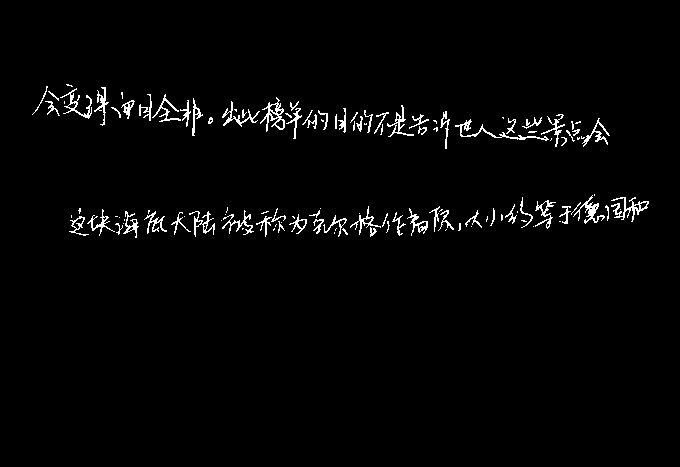 会变得面目全非。出此榜单的目的不是告诉世人这些景点会
这块海底大陆被称为克尔格伦高原,大小约等于德国和